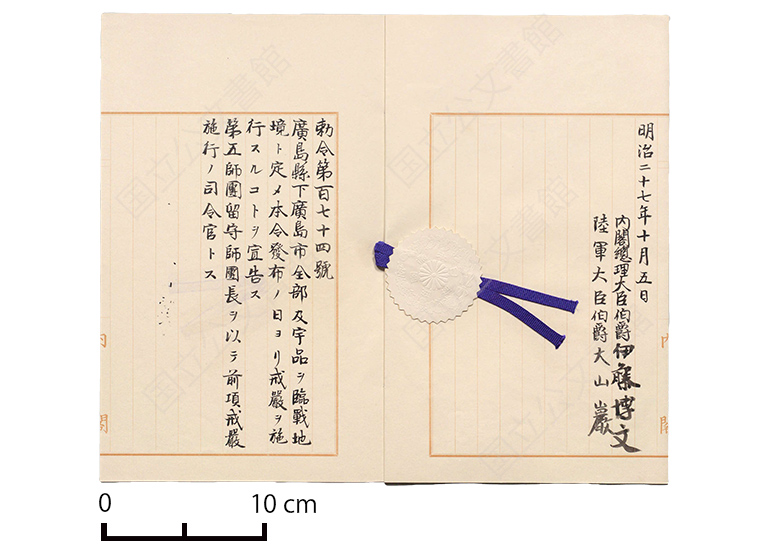 明治二十七年十月五日
内閣總理大臣伯爵伊藤博文
陸軍大臣伯爵大山巖
勅令第百七十四號
廣島縣下廣島市全部及宇品ヲ臨戰地
境ト定メ本令發布ノ日ヨリ戒嚴ヲ施
行スルコトヲ宣告ス
第五師團留守師團長ヲ以テ前項戒嚴
施行ノ司令官トス
内閣
内閣
国立公文書館
国立公文書館
国立公文書館
国立公文書館
0 10 cm